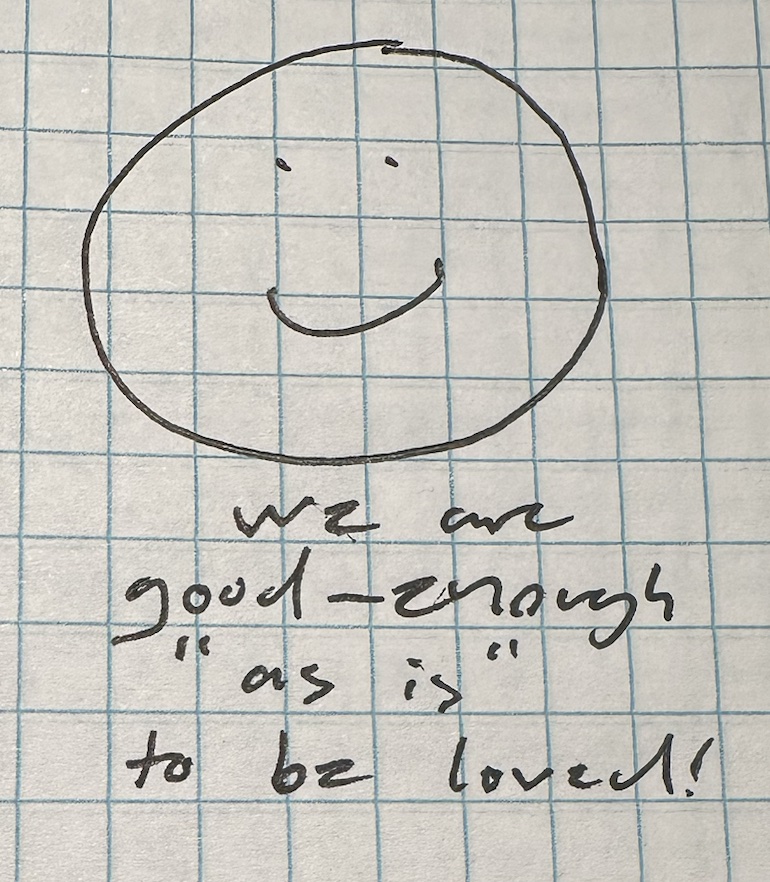 we are
good-enough
"as is"
to be loved!